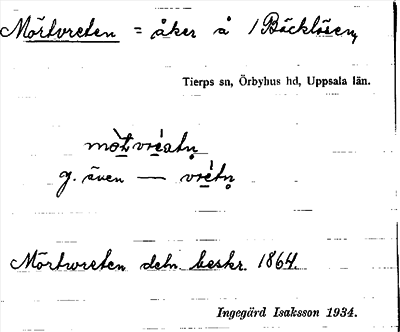 Mörtvreten = åker å / Bäcklösen,
Tierps sn, Örbyhus hd, Uppsala län.
g. även —
Mörtwreten deln. beskr. 1864.
Ingegärd Isaksson 1934.